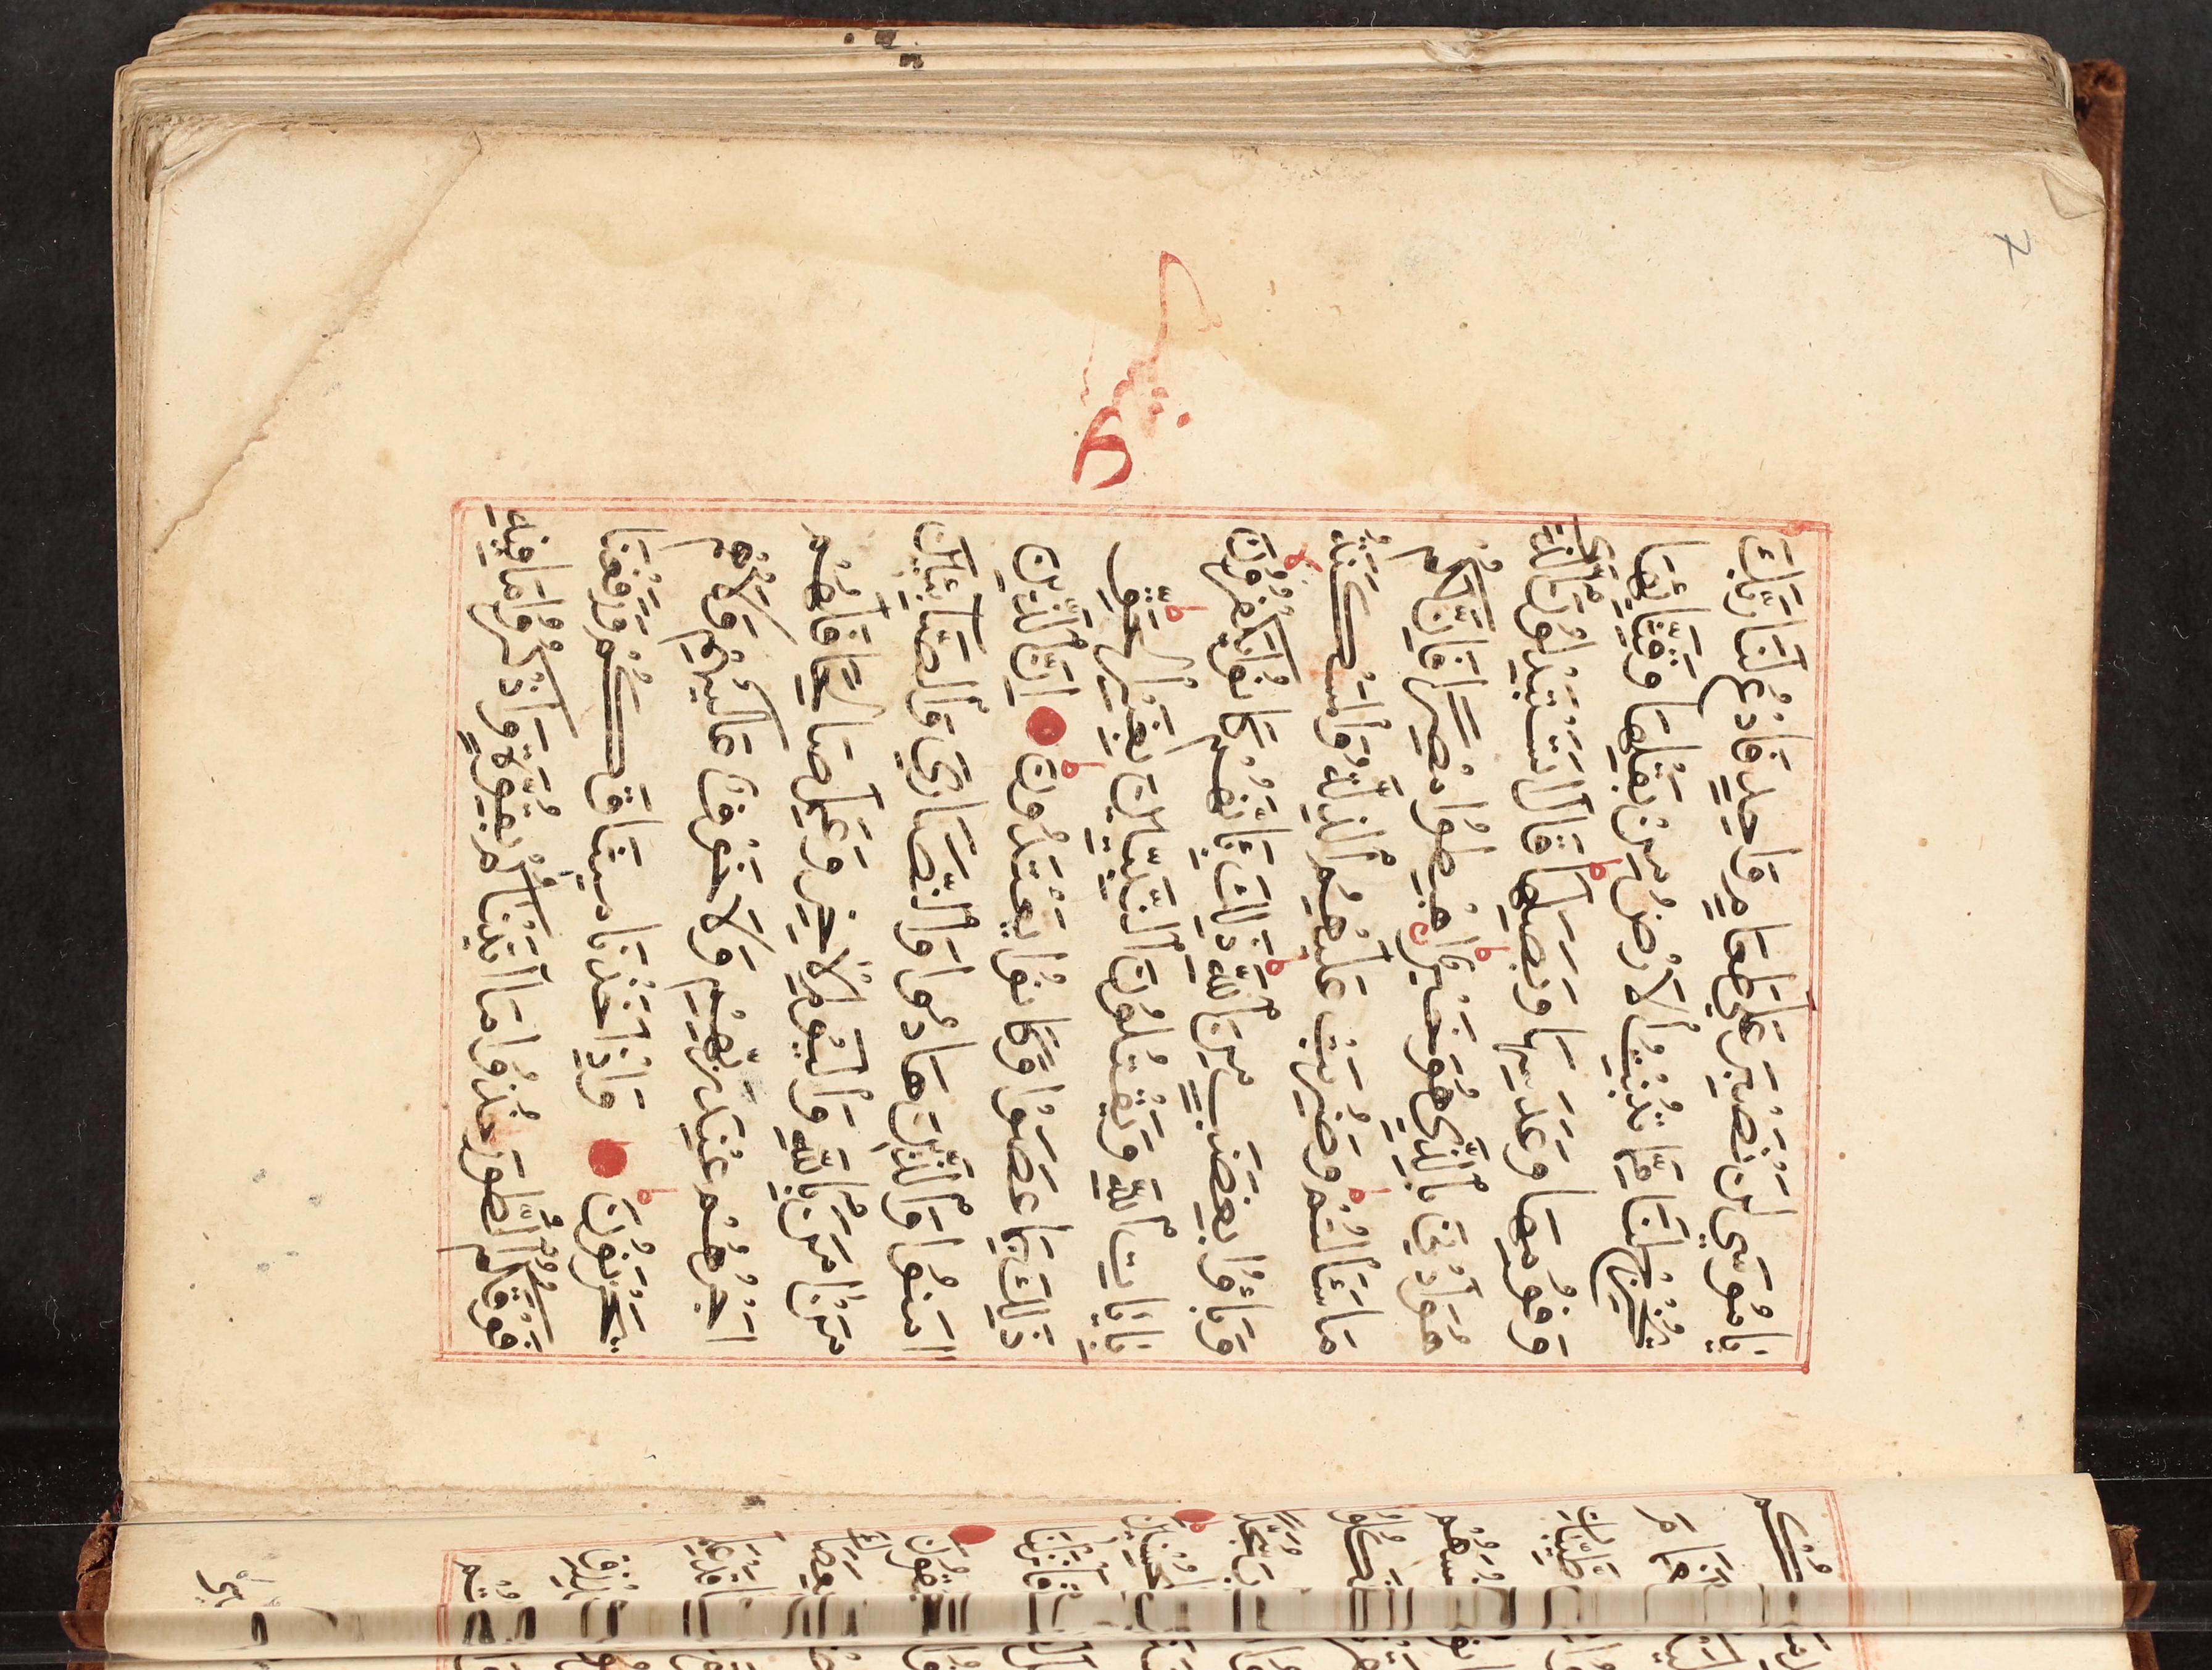 يَا مُوسَى لَنْ نَصْبِرَ عَلَى طَعَامٍ وَاحِدٍ فَادْعُ لَنَا رَبَّكَ
يُخْرِجْ لَنَا مِمَّا تُنْبِتُ الْاَرْضُ مِنْ بَقْلِهَا وَقِثَّائِهَا
وَفُومِهَا وَعَدَسِهَا وَبَصَلِهَا ط قَالَ اَتَسْتَبْدِلُونَ الَّذِي
هُوَ اَدْنَى بِالَّذِي هُوَ خَيْرٌ ط اِهْبِطُوا مِصْرًا فَاِنَّ لَكُمْ
مَا سَئَلْتُمْ ط وَضُرِبَتْ عَلَيْهِمُ الذِّلَّةُ وَالْمَسْكَنَةُ
وَبَاؤُا بِغَضَبٍ مِنَ اللّٰهِ ط ذَلِكَ بِاَنَّهُمْ كَانُوا يَكْفُرُونَ
بِاٰيَاتِ اللّٰهِ وَيَقْتُلُونَ النَّبِيِّينَ بِغَيْرِ الْحَقِّ ط
ذَلِكَ بِمَا عَصَوْا وَكَانُوا يَعْتَدُونَ ط اِنَّ الَّذِينَ
اٰمَنُوا وَالَّذِينَ هَادُوا وَالنَّصَارَى وَالصَّابِئِينَ
مَنْ اٰمَنَ بِاللّٰهِ وَالْيَوْمِ الْاٰخِرِ وَعَمِلَ صَالِحًا فَلَهُمْ
اَجْرُهُمْ عِنْدَ رَبِّهِمْ وَلَا خَوْفٌ عَلَيْهِمْ وَلَا هُمْ
يَحْزَنُونَ ط وَاِذْ اَخَذْنَا مِيثَاقَكُمْ وَرَفَعْنَا
فَوْقَكُمُ الطُّورَ خُذُوا مَا اٰتَيْنَاكُمْ بِقُوَّةٍ وَاذْكُرُوا مَا فِيهِ